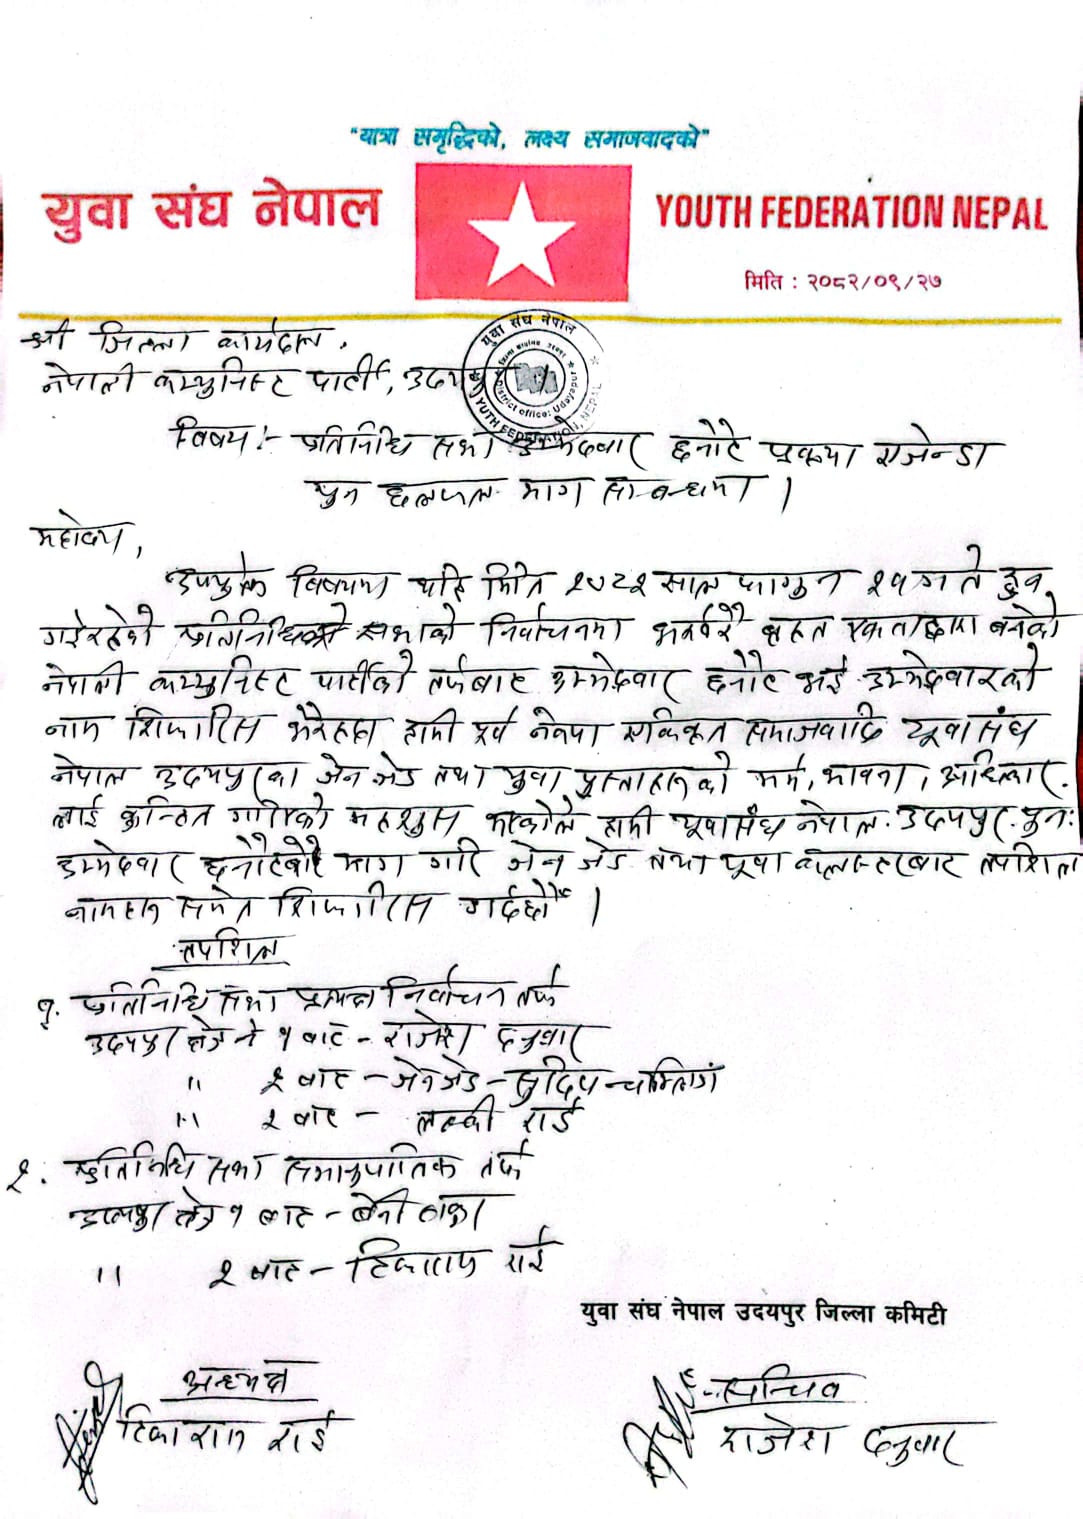 "यात्रा समृद्धिको, लक्ष्य समाजवादको"
युवा संघ नेपाल
YOUTH FEDERATION NEPAL
मिति : २०८२/०९/२७
श्री जिल्ला कार्यदल,
नेपाली कम्युनिस्ट पार्टी, उदयपुर
युवा संघ नेपाल
District office: Udayapur
YOUTH FEDERATION, NEPAL
विषय:- प्रतिनिधि सभा उम्मेदवार छनौट प्रकृया एजेन्डा
पुन छलफल माग सम्बन्धमा ।
महोदय,
उपयुक्त विषयमा यहि मिति २०८२ साल फागुन २१ गते हुन
गईरहेको प्रतिनिधि सभाको निर्वाचनमा भर्खरै बृहत एकताद्वारा बनेको
नेपाली कम्युनिस्ट पार्टीको तर्फबाट उम्मेदवार छनौट भई उम्मेदवारको
नाम शिफारिस भैरहदा हामी पूर्व नेकपा एकिकृत समाजवादि यूवा संघ
नेपाल उदयपुरका जेन जेड तथा युवा पुस्ताहरुको मर्म, भावना, अधिकार
लाई कुन्ठित गरिएको महशुस भएकोले हामी यूवा संघ नेपाल उदयपुर पुनः
उम्मेदवार छनौटको माग गरि जेन जेड तथा यूवा कलस्टरबाट तपशिल
नामहरु समेत शिफारिस गर्दछौं ।
तपशिल
१. प्रतिनिधि सभा प्रत्यक्ष निर्वाचन तर्फ
उदयपुर क्षेत्र नं १ बाट - राजेश दनुवार
" २ बाट - जेनजेड - सुदिप चाम्लिङ
" २ बाट - लक्की राई
२. प्रतिनिधि सभा समानुपातिक तर्फ
उदयपुर क्षेत्र १ बाट -
" २ बाट - टिकाराम राई
युवा संघ नेपाल उदयपुर जिल्ला कमिटी
अध्यक्ष
टिकाराम राई
सचिव
राजेश दनुवार